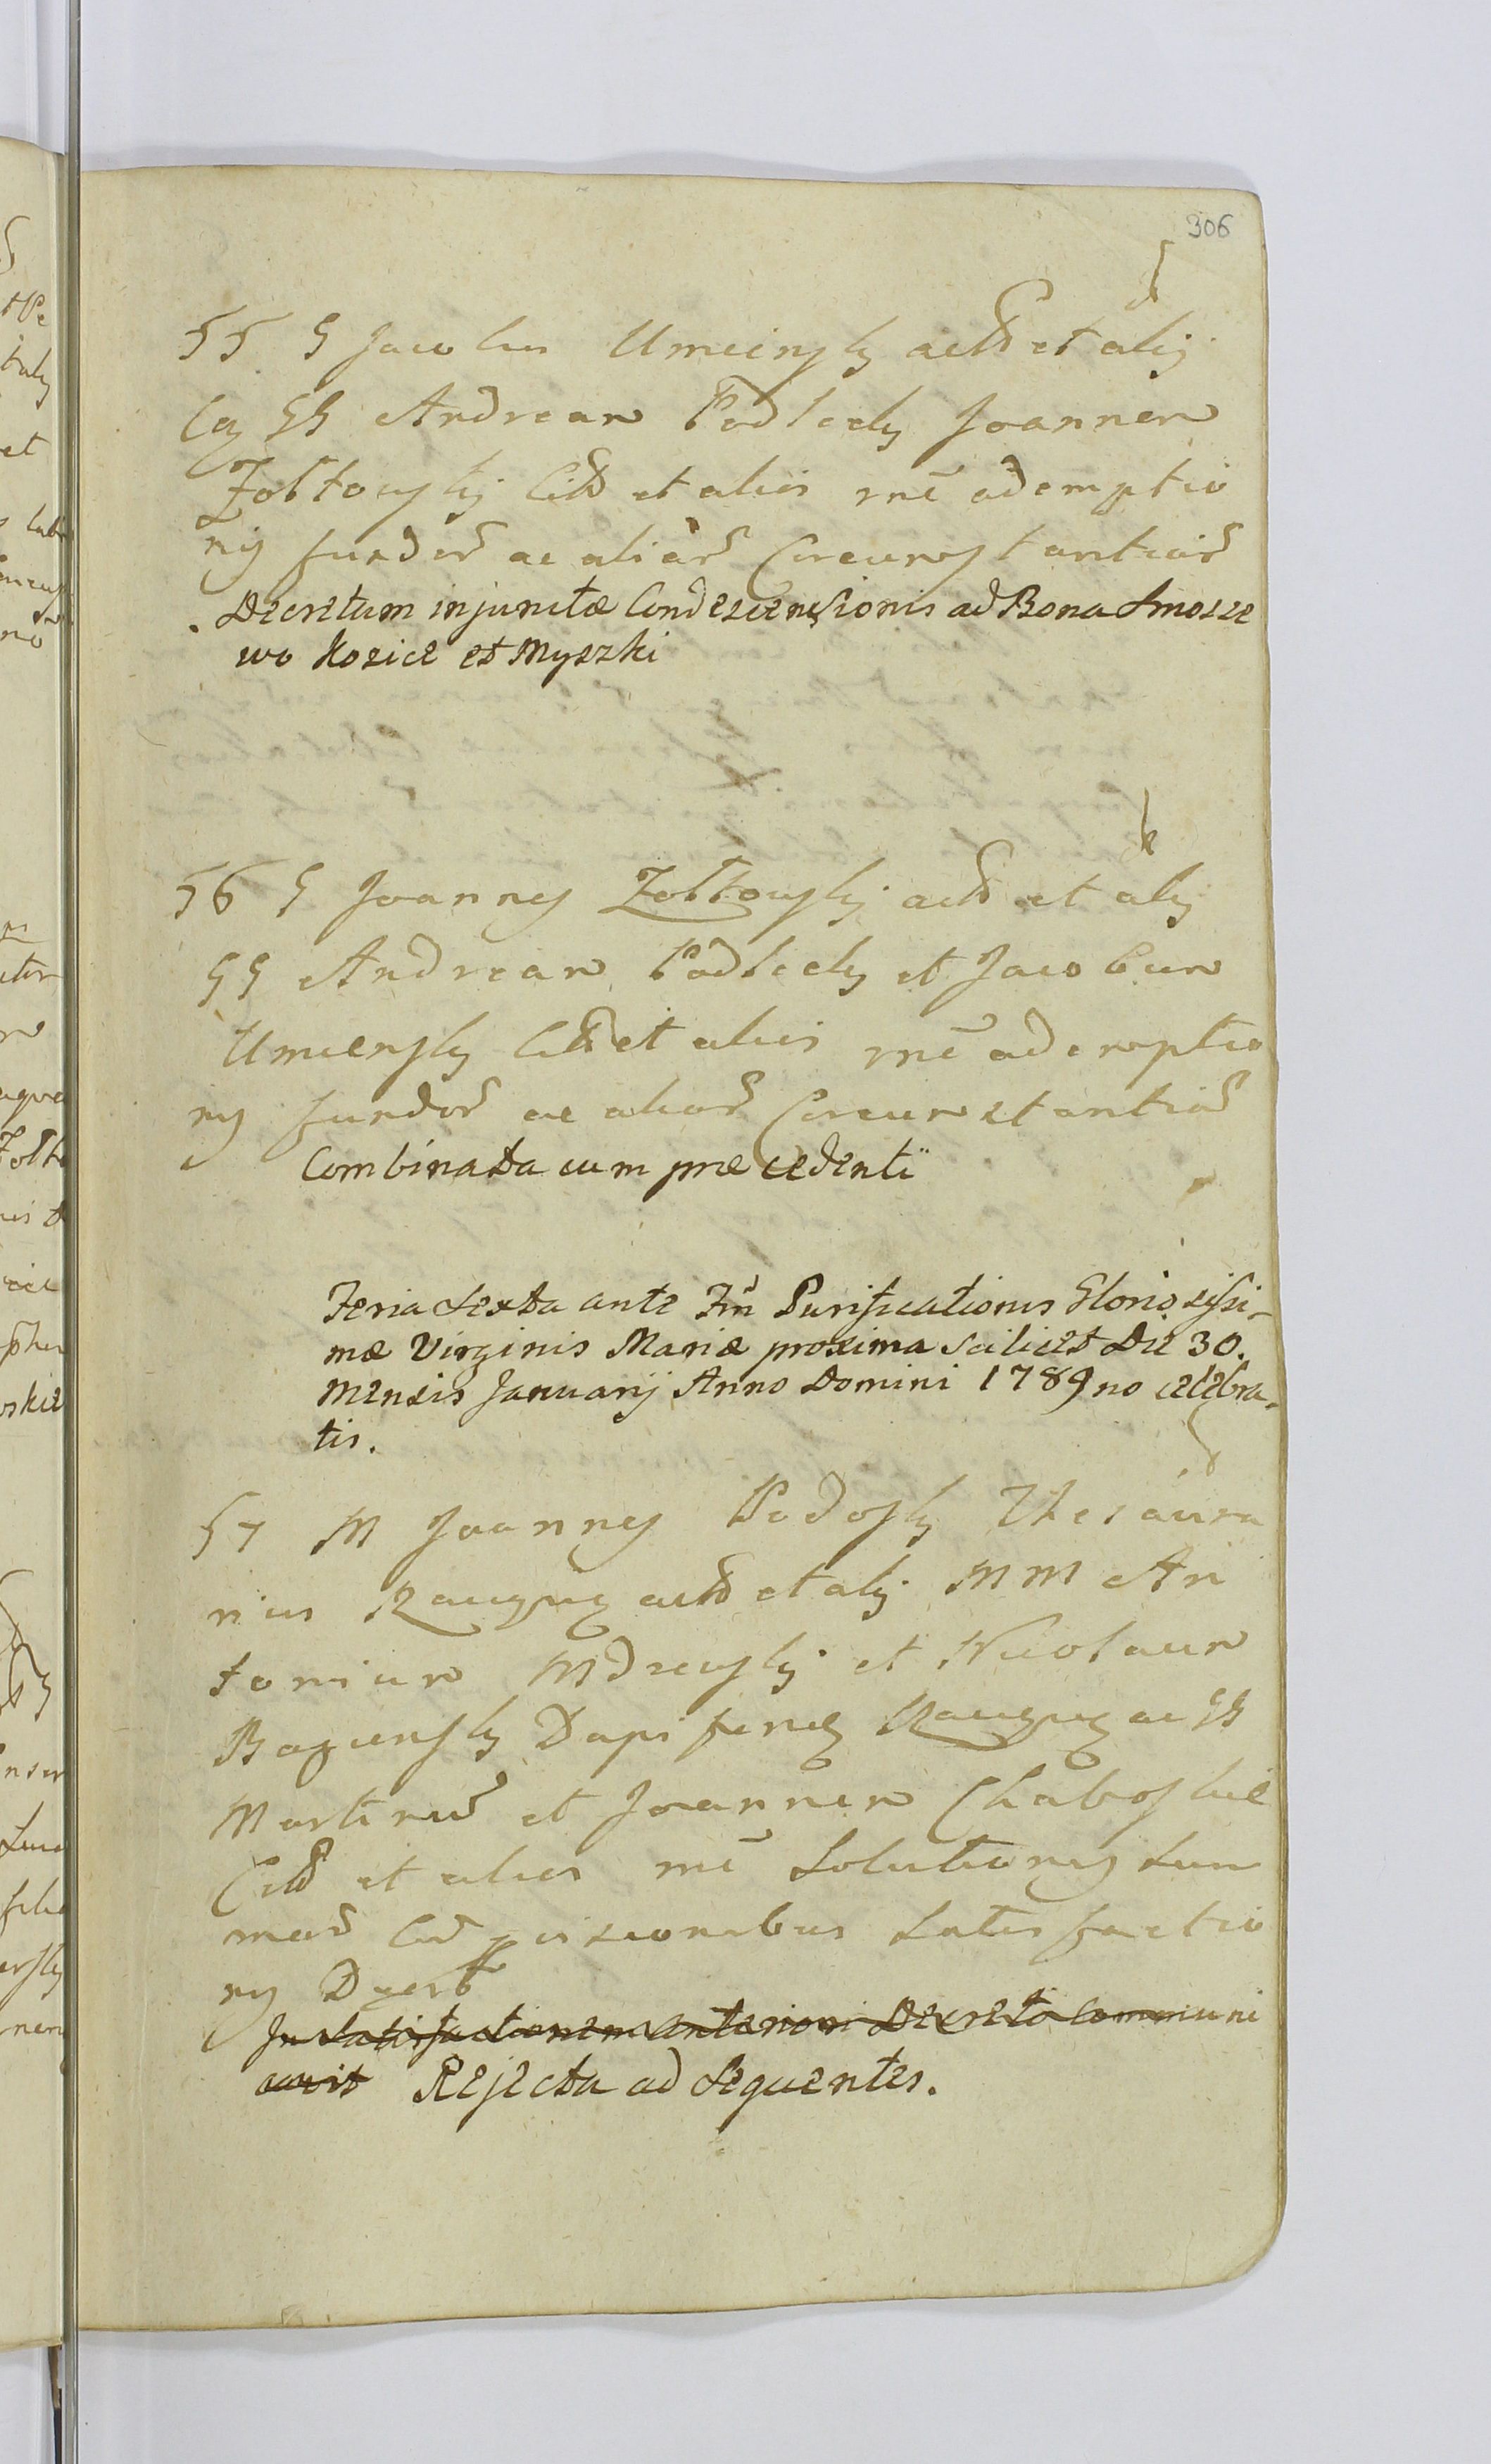 306
55 G Jacobus Umeinsky actẽ et alij
Cg GG Andream Podlecky Joannem
Zołtowsky Citt et alios rnẽ ademptio
nis fundor ac aliar Circumstantiar
Decretum injunctæ Condescensionis ad Bona Smosze
wo Kosice et Myszki
56 G Joannes Zołtowsky actẽ et alij
GG Andream Podlecky et Jacobum
Umiensky Citt et alios rnẽ ademptio
nis fundor ac aliar Circumstantiar
Combinata cum præcedenti
Feria Sexta ante Fm̃ Purificationis Gloriosissi-
mæ Virginis Mariæ proxima scilicet Die 30.
Mensis Januarij Anno Domini 1789no celebra-
tis.
57 M Joannes Podosky Thesaura
rius actẽ et alij MM An
tonium Mdzewsky et Nicolaum
Dapiferũ ac GG
Martinũ et Joannem Chaboskie
Citt et alios rnẽ Solutionis Sum
mar Cũ pisionibus Satisfactio
nis
In Satisfactionem anteriori Decreto communi
cavit Rejecta ad Sequentes.